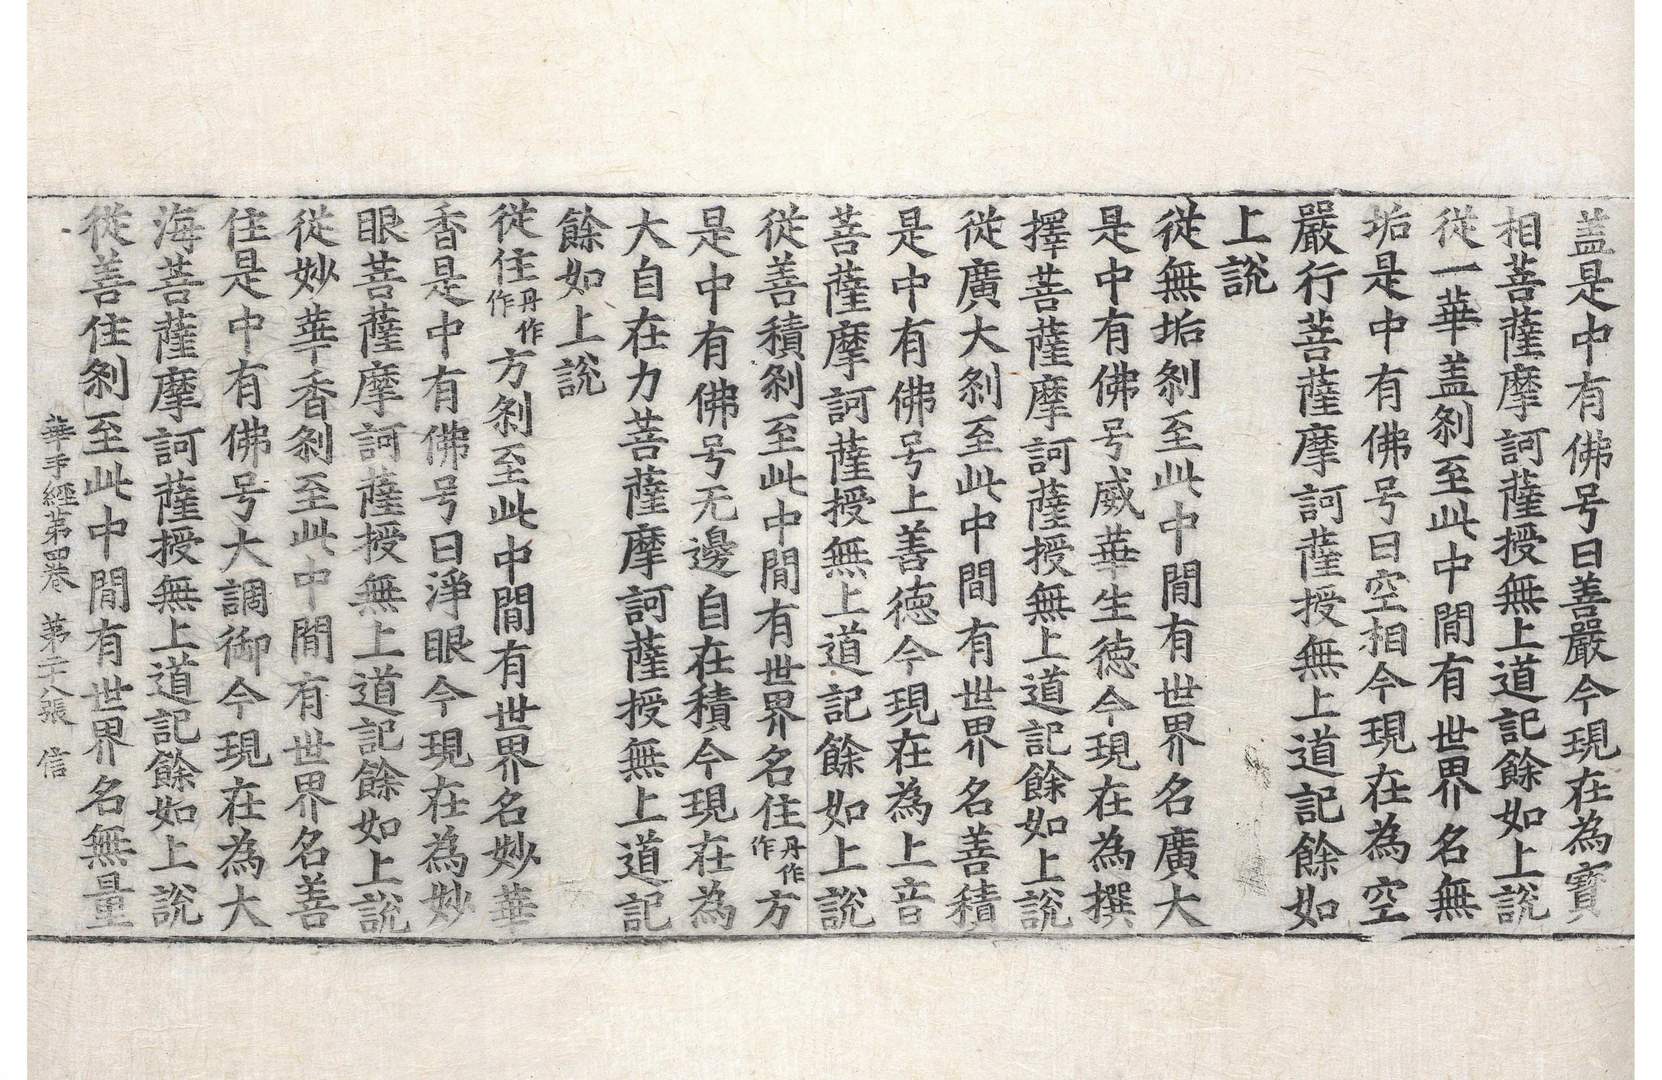 盖是中有佛号曰善嚴今現在為寶
相菩薩摩訶薩授無上道記餘如上說
從一華盖剎至此中閒有世界名無
垢是中有佛号曰空相今現在為空
嚴行菩薩摩訶薩授無上道記餘如
上說
從無垢剎至此中閒有世界名廣大
是中有佛号威華生德今現在為撰
擇菩薩摩訶薩授無上道記餘如上說
從廣大剎至此中閒有世界名善積
是中有佛号上善德今現在為上音
菩薩摩訶薩授無上道記餘如上說
從善積剎至此中閒有世界名住丹作作方
是中有佛号无邊自在積今現在為
大自在力菩薩摩訶薩授無上道記
餘如上說
從住丹作作方剎至此中閒有世界名妙華
香是中有佛号曰淨眼今現在為妙
眼菩薩摩訶薩授無上道記餘如上說
從妙華香剎至此中閒有世界名善
住是中有佛号大調御今現在為大
海菩薩摩訶薩授無上道記餘如上說
從善住剎至此中閒有世界名無量
華手經第四卷 第二十八張 信